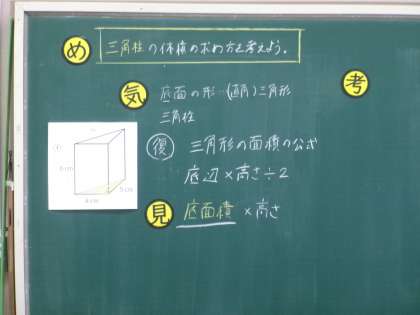 め 三角柱の体積の求め方を考えよう。
考
気 底面の形…(直角)三角形
三角柱
復 三角形の面積の公式
底辺×高さ÷2
見 底面積×高さ